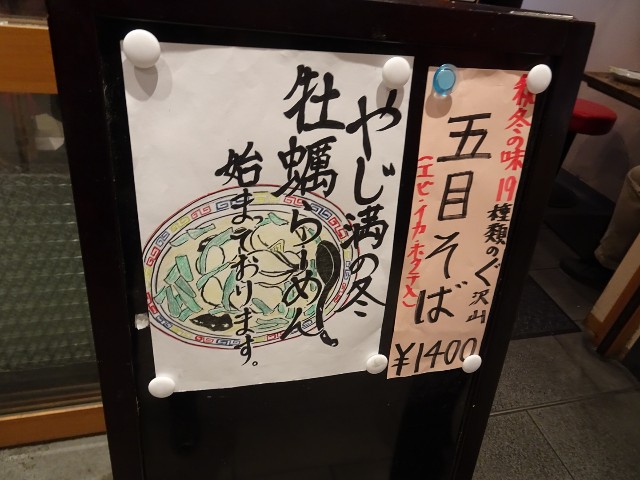 やじ満の冬
牡蠣らーめん
始まっております。
秋冬の味
19種類のぐ沢山
五目そば
(エビ・イカ・ホタテ入)
¥1400